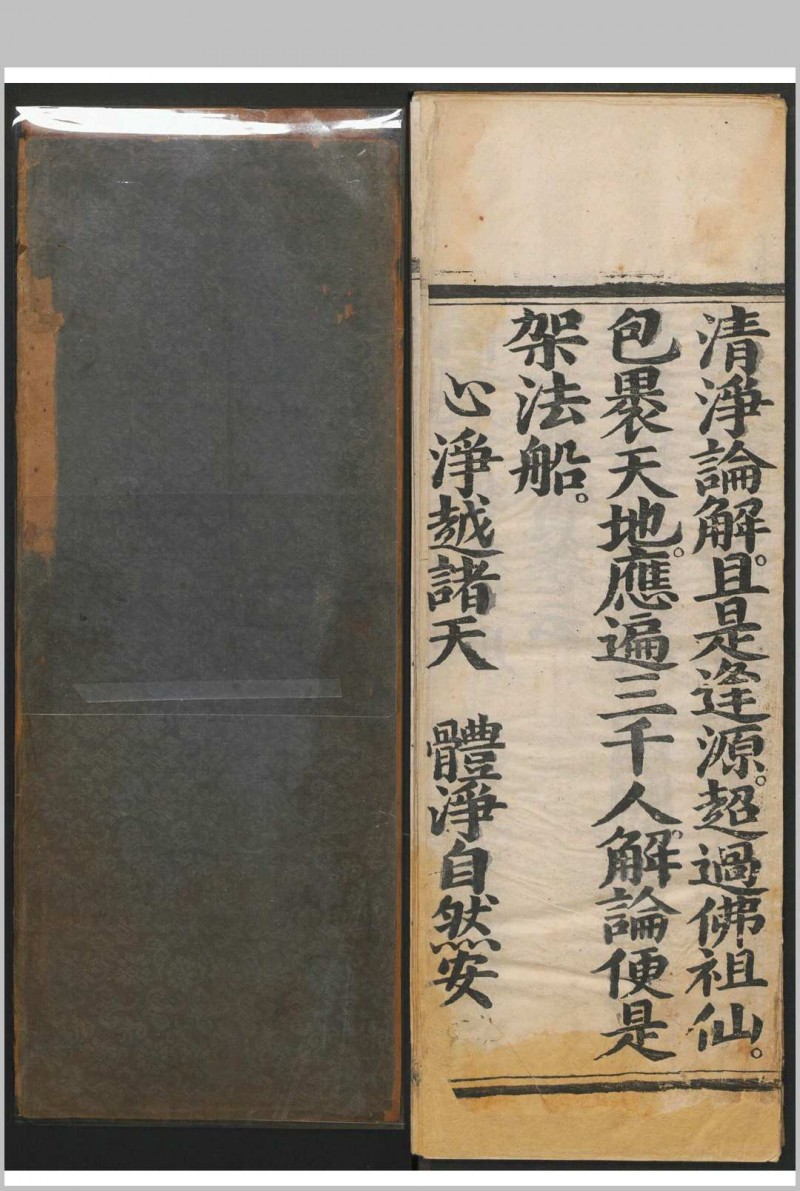 清淨論解。且是逢源。超過佛祖仙。
包褁天地。應遍三千人。解論便是
架法船。
心淨越諸天　體淨自然安